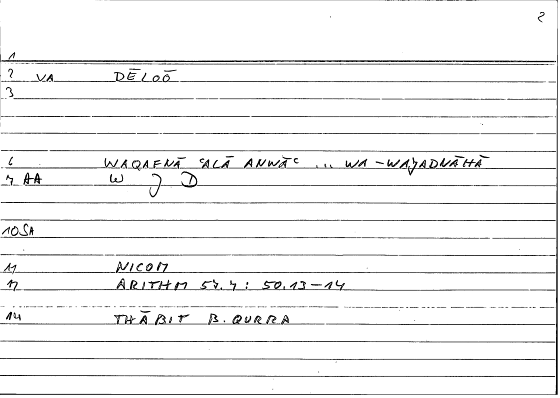 2
1
2 VA DĒLOŌ
3
6 WAQAFNĀ ʿALĀ ANWĀʿ ... WA-WAJADNĀHĀ
7 AA W J D
10 SA
11 NICOM
ARITHM 50.13–14
14 THĀBIT B. QURRA